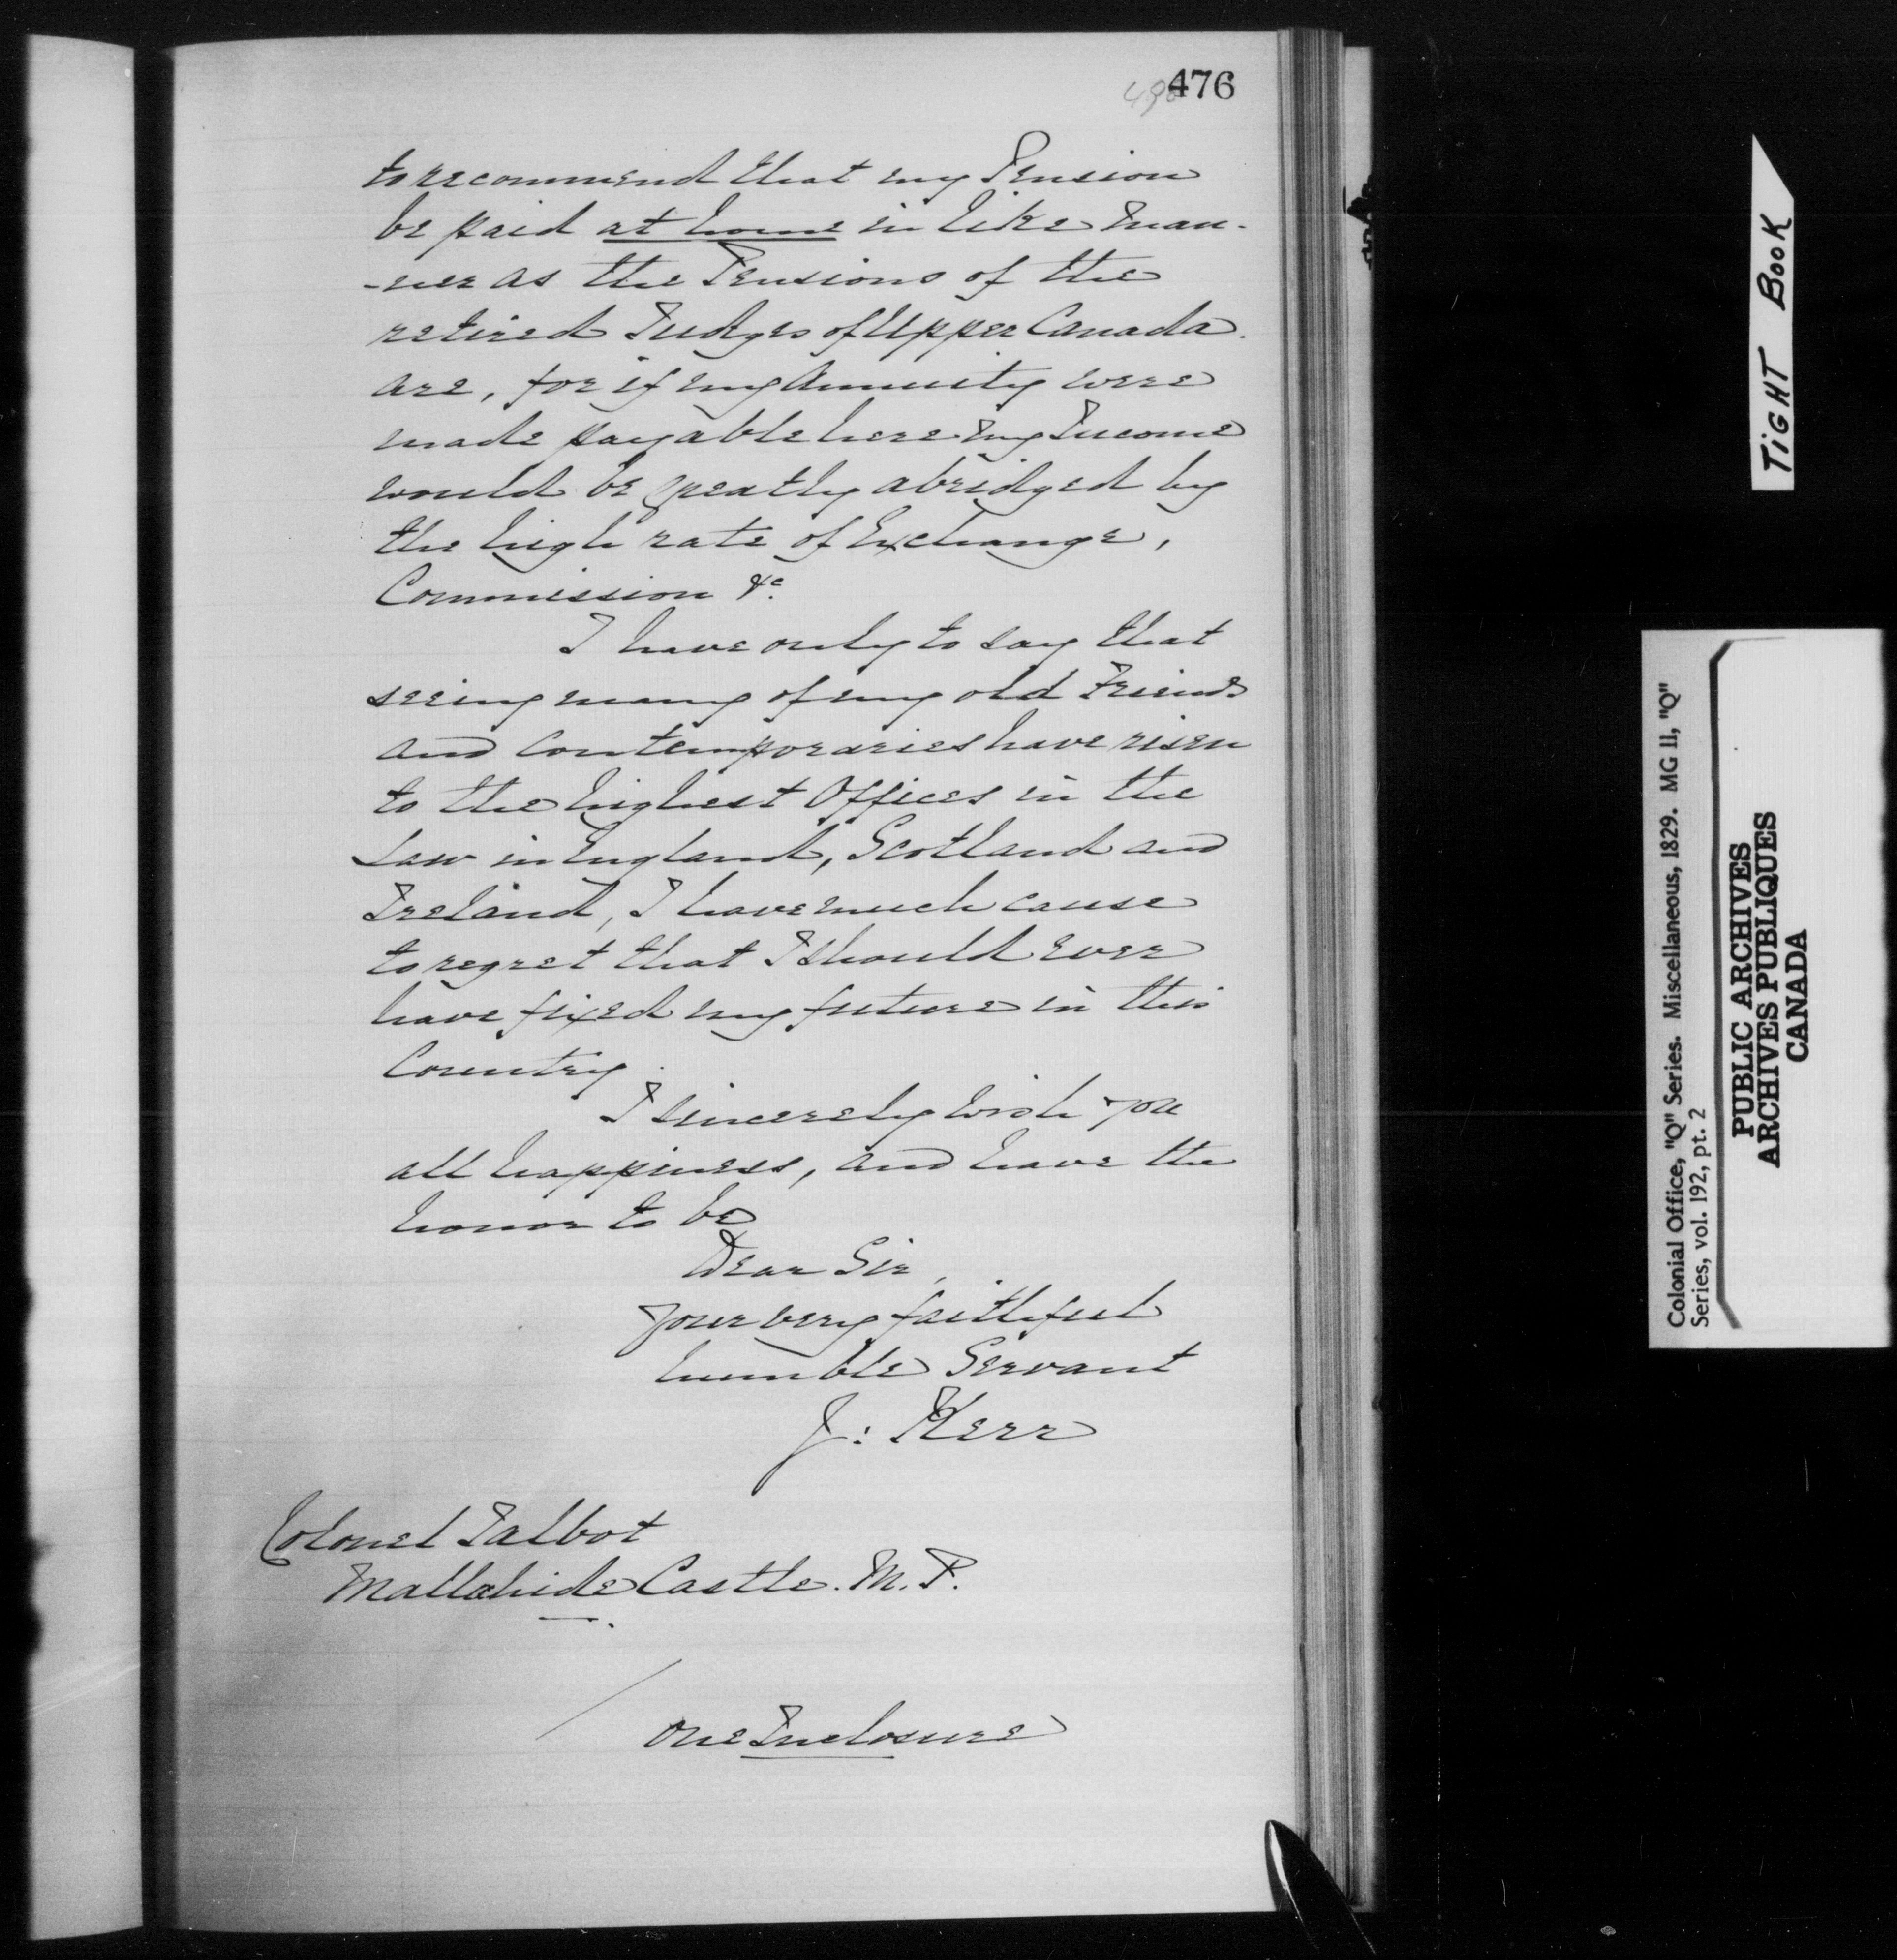 476
to recommend that my Pension
be paid at home in like man-
-ner as the Pensions of the
retired Judges of Upper Canada
are, for if my Annuity were
made payable here my Income
would be greatly abridged by
the high rate of Exchange,
Commission &c.
I have only to say that
seeing many of my old Friends
and Contemporaries have risen
to the highest Offices in the
Law in England, Scotland and
Ireland, I have much cause
to regret that I should ever
have fixed my future in this
Country.
I sincerely wish you
all happiness, and have the
honor to be
Dear Sir,
your very faithful
humble Servant
J: Kerr
Colonel Talbot
Mallahide Castle. M.P.
One Inclosure
TIGHT BOOK
Colonial Office, "Q" Series. Miscellaneous, 1829. MG 11, "Q"
Series, vol. 192, pt. 2
PUBLIC ARCHIVES
ARCHIVES PUBLIQUES
CANADA